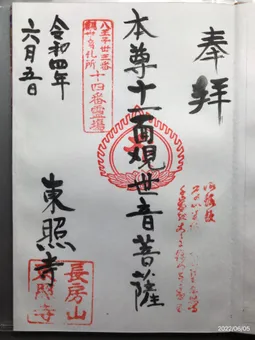 奉拝
本尊十一面観世音菩薩
八王子三十三番
観世音札所
十四番霊場
東照寺
長房山
東照寺
令和四年
六月五日
2022/06/05